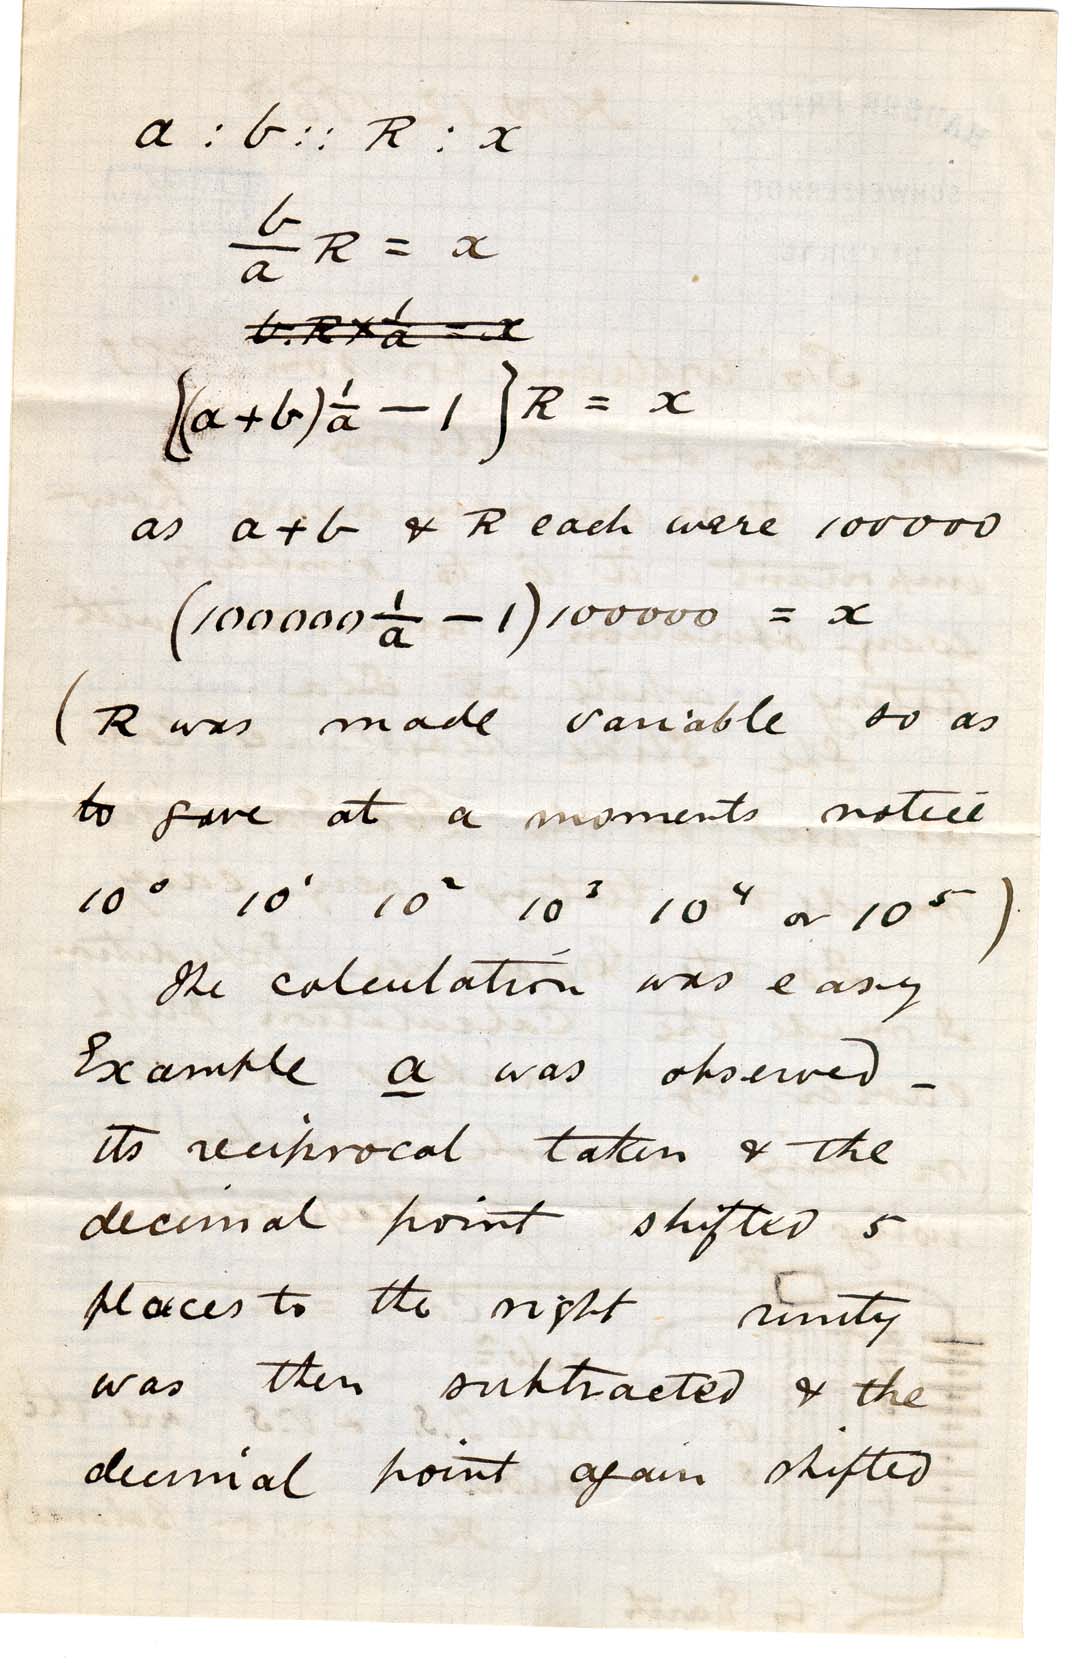 a : b :: R : x
b/a R = x
b.R × 1/a = x
{(a+b) 1/a — 1} R = x
as a+b & R each were 100000
(100000 1/a — 1) 100000 = x
(R was made variable so as
to gave at a moments notice
10⁰ 10¹ 10² 10³ 10⁴ or 10⁵)
The calculation was easy
Example a was observed –
its reciprocal taken & the
decimal point shifted 5
places to the right unity
was then subtracted & the
decimal point again shifted